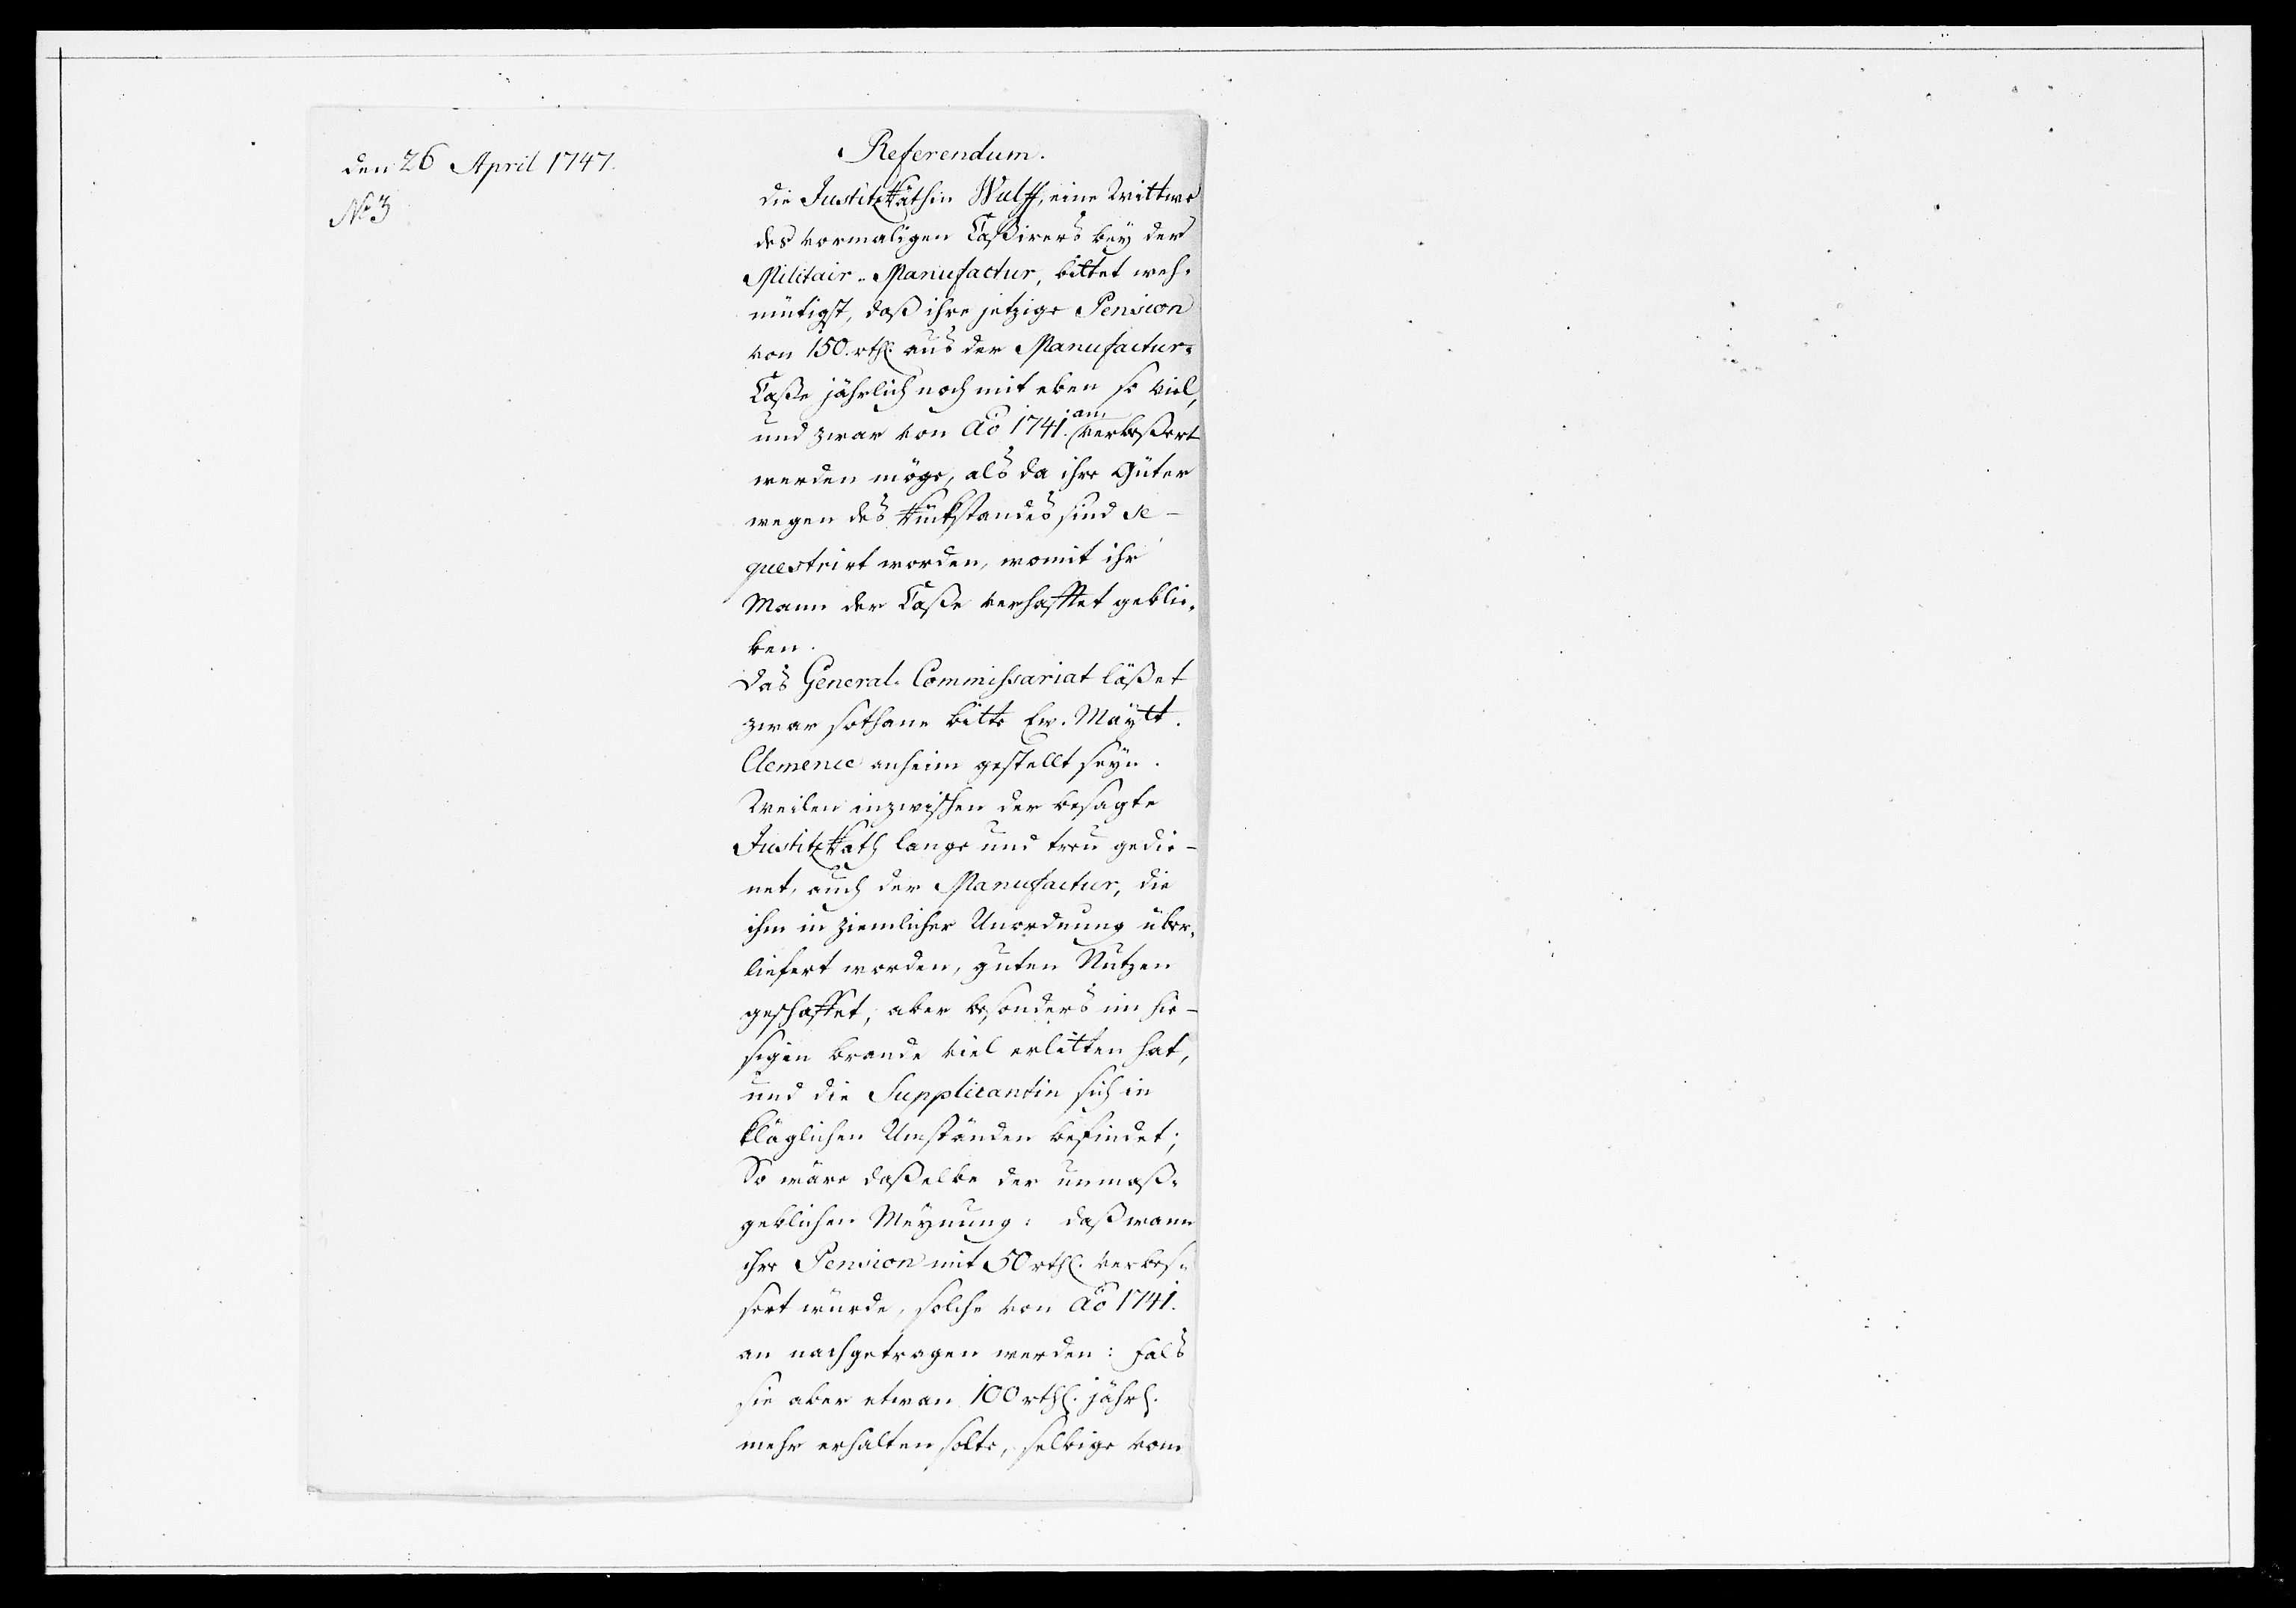 den 26 April 1747.
No 3
Referendum.
die JustitzRäthin Wulff, eine Wittwe
des vormaligen Caßirers bey der
Militair-Manufactur, bittet weh-
mütigst, daß ihre jetzige Pension
von 150. rthl. aus der Manufactur-
Caße jährlich noch mit eben so viel,
und zwar von Ao 1741. an verbeßert
werden möge, als da ihre Güter
wegen des Rückstandes sind se-
questrirt worden, womit ihr
Mann der Caße verhafftet geblie-
ben.
Das General-Commissariat läßet
zwar sothane bitte Ew. Maytt.
Clemence anheim gestellt seyn.
Weilen inzwischen der besagte
JustitzRath lange und treu gedie-
net, auch der Manufactur, die
ihm in ziemlicher Unordnung über-
liefert worden, guten Nutzen
geschaffet, aber besonders im hie-
sigen brande viel erlitten hat,
und die Supplicantin sich in
kläglichen Umständen befindet;
So wäre daßelbe der unmaß-
geblichen Meynung: daß wann
ihre Pension mit 50 rthl. verbes-
sert würde, solche von Ao 1741.
an nachgetragen werden: fals
sie aber etwan 100 rthl. jährl.
mehr erhalten solte, selbige vom